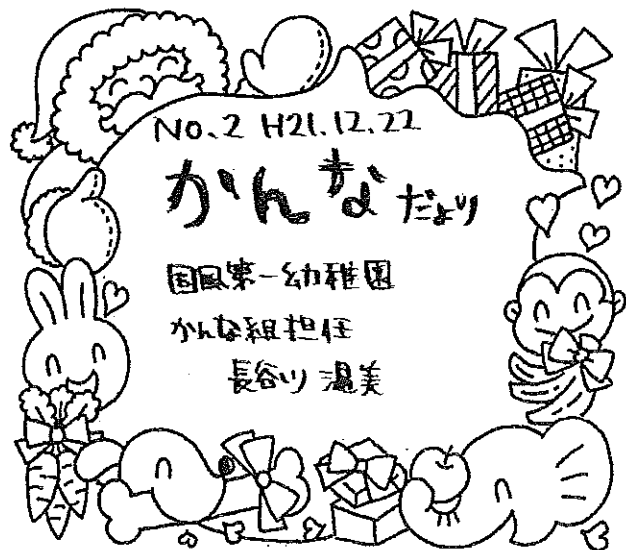 No.2 H21.12.22
かんなだより
国風第一幼稚園
かんな組担任
長谷川 温美